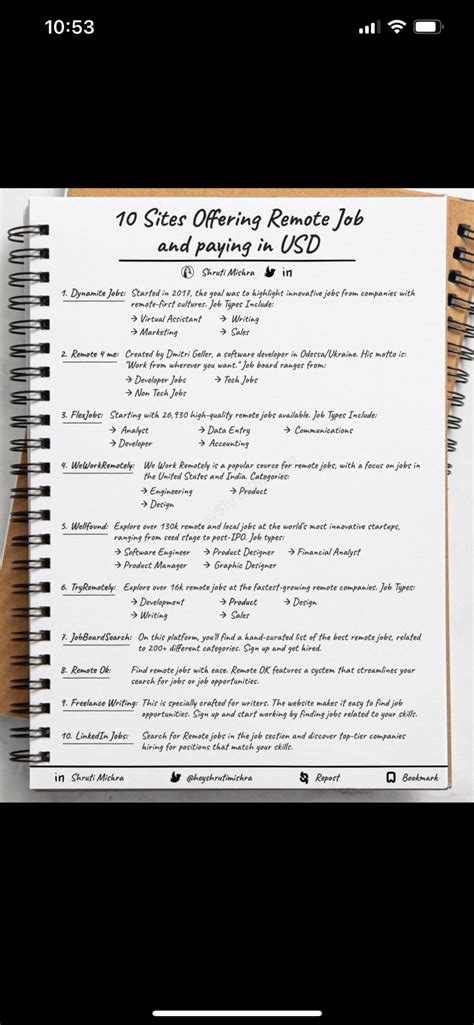 10:53
10 Sites Offering Remote Job
and paying in USD
Shruti Mishra in
1. Dynamite Jobs: Started in 2017, the goal was to highlight innovative jobs from companies with
remote-first cultures. Job Types Include:
→ Virtual Assistant → Writing
→ Marketing → Sales
2. Remote 4 me: Created by Dmitri Geller, a software developer in Odessa/Ukraine. His motto is:
"Work from wherever you want." Job board ranges from:
→ Developer Jobs → Tech Jobs
→ Non Tech Jobs
3. FlexJobs: Starting with 26,930 high-quality remote jobs available. Job Types Include:
→ Analyst → Data Entry → Communications
→ Developer → Accounting
4. WeWorkRemotely: We Work Remotely is a popular source for remote jobs, with a focus on jobs in
the United States and India. Categories:
→ Engineering → Product
→ Design
5. Wellfound: Explore over 130k remote and local jobs at the world's most innovative startups,
ranging from seed stage to post-IPO. Job types:
→ Software Engineer → Product Designer → Financial Analyst
→ Product Manager → Graphic Designer
6. TryRemotely: Explore over 16k remote jobs at the fastest-growing remote companies. Job Types:
→ Development → Product → Design
→ Writing → Sales
7. JobBoardSearch: On this platform, you'll find a hand-curated list of the best remote jobs, related
to 200+ different categories. Sign up and get hired.
8. Remote Ok: Find remote jobs with ease. Remote OK features a system that streamlines your
search for jobs or job opportunities.
9. Freelance Writing: This is specially crafted for writers. The website makes it easy to find job
opportunities. Sign up and start working by finding jobs related to your skills.
10. LinkedIn Jobs: Search for Remote jobs in the job section and discover top-tier companies
hiring for positions that match your skills.
in Shruti Mishra @heyshrutimishra Repost Bookmark